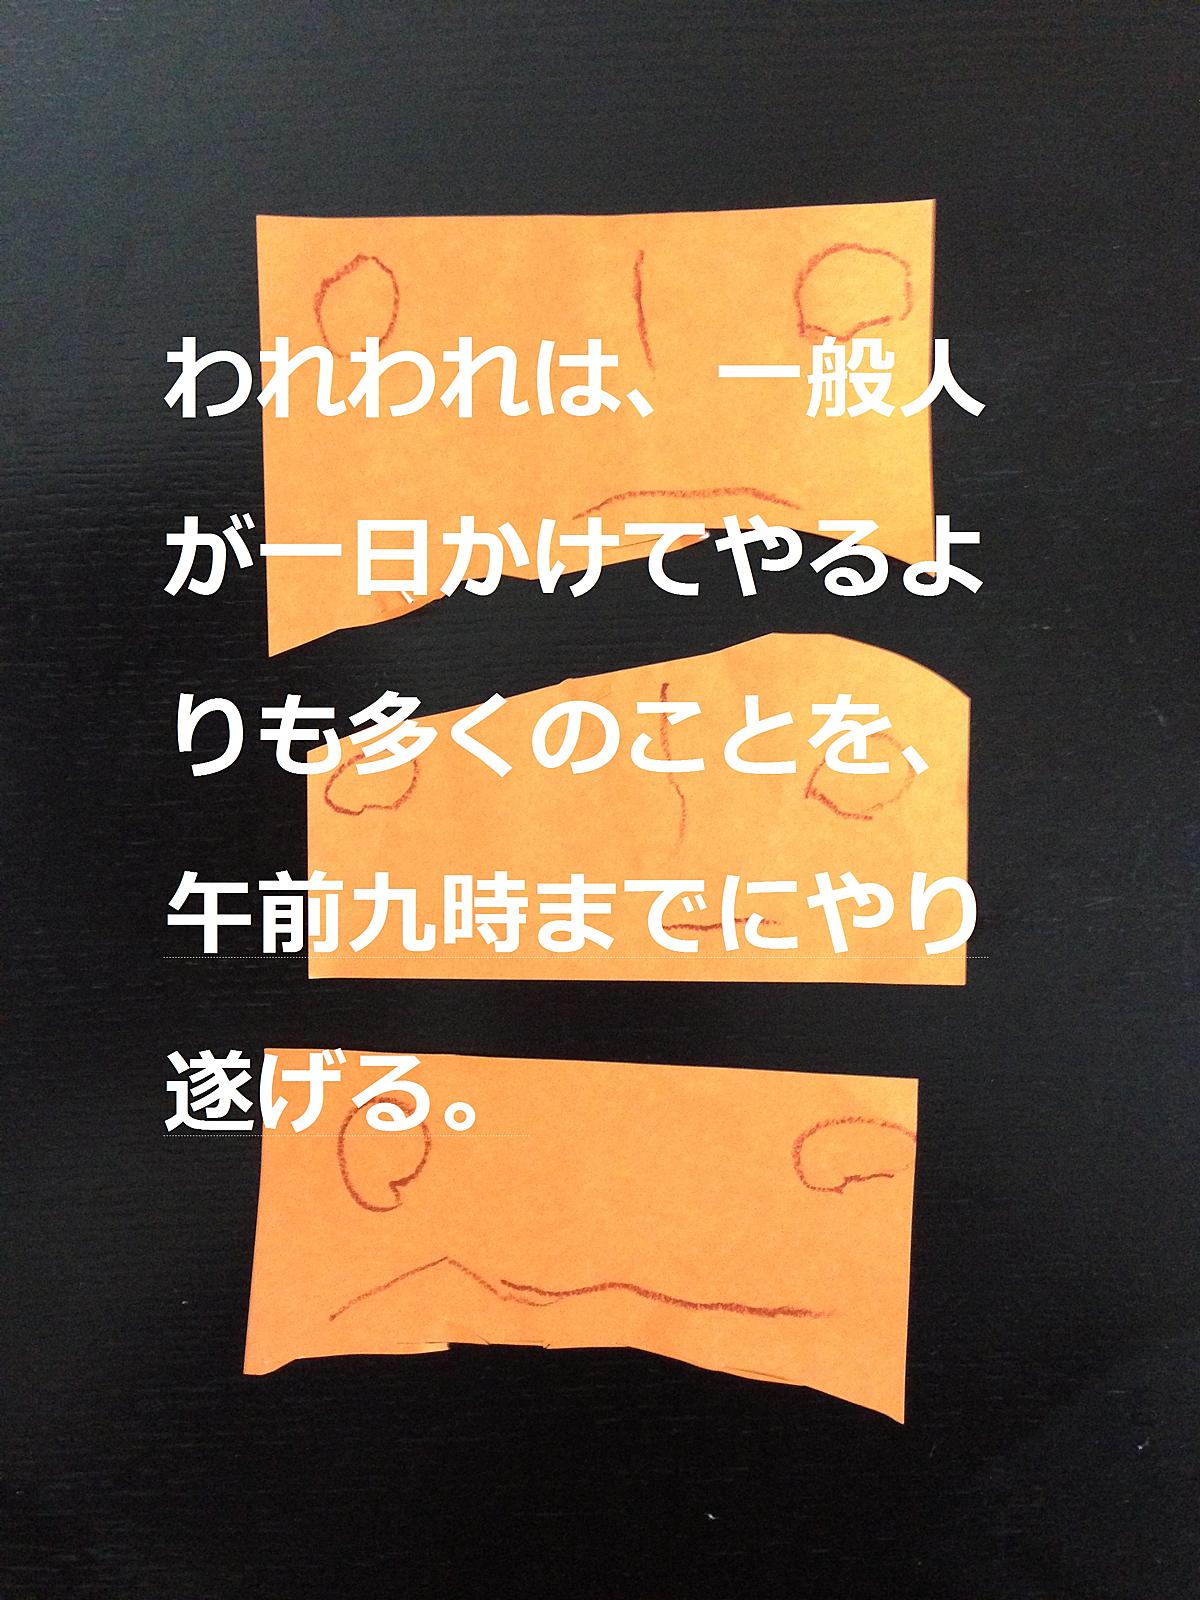 われわれは、一般人
が一日かけてやるよ
りも多くのことを、
午前九時までにやり
遂げる。